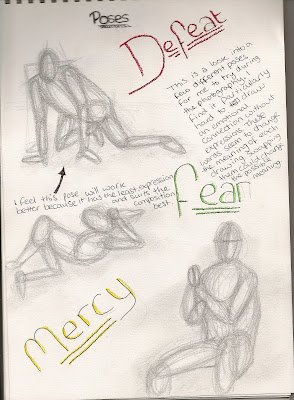 Poses
Defeat
This is a look into a
few different poses
for me to try during
the photography. I
find it particularly
hard to draw
an emotional
connection without
expression. These
words seem to change
the meaning of each
drawing. Swapping
them could change
meaning.
I feel this pose will work
better because it has the least expression
and suits the
composition
best.
fear
Mercy